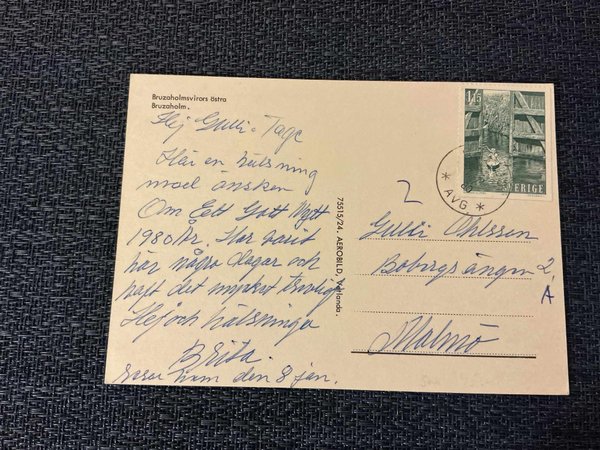 Bruzaholmsvirors östra
Bruzaholm.
Hej Gulli o Tage
Här en hälsning
med önskan
Om Ett Gott Nytt
1980 År. Har varit
här några dagar och
haft det mycket trevligt
Hej och hälsningar
Brita.
resar hem den 8 jan.
75515/24, AEROBILD, Vetlanda.
115
SVERIGE
* AVG *
2
Gulli Ohlsson
Bobergsängen 2,
A
Malmö